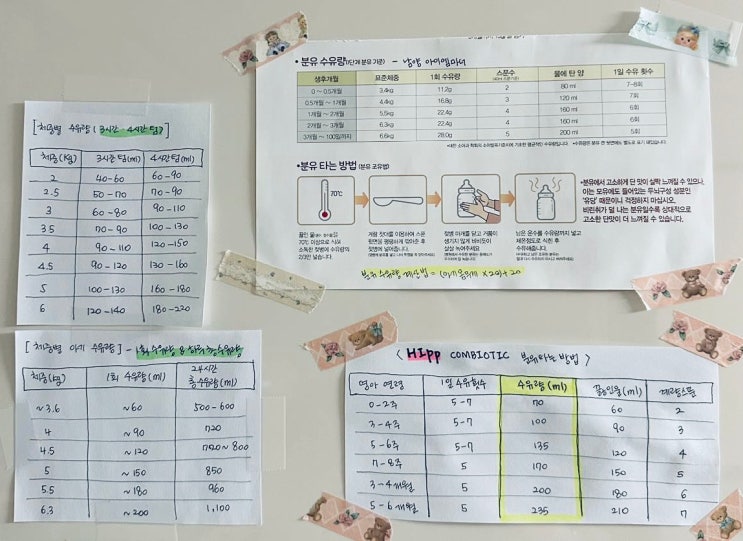 • 분유 수유량(1단계 분유 기준) - 남양 아이엠마더
생후개월 표준체중 1회 수유량 스푼수 물에 탄 양 1일 수유 횟수
0 ~ 0.5개월 3.4kg 11.2g 2 80 ml 7~8회
0.5개월 ~ 1개월 4.4kg 16.8g 3 120 ml 7회
1개월 ~ 2개월 5.5kg 22.4g 4 160 ml 6회
2개월 ~ 3개월 6.3kg 22.4g 4 160 ml 6회
3개월 ~ 100일까지 6.6kg 28.0g 5 200 ml 5회
• 분유 타는 방법 (분유 조유법)
70℃
70℃ 이상으로 식혀
소독한 젖병에 수유량의
2/3만 넣습니다.
계량 젓가락을 이용하여 스푼
윗면을 평평하게 깎아준 후
젖병에 넣어줍니다.
젖병 마개를 닫고 거품이
생기지 않게 비비도이
살살 녹여주세요
남은 온수를 수유량까지 넣고
체온정도로 식힌 후
수유해줍니다.
• 분유에서 고소하게 단 맛이 살짝 느껴질 수 있으나,
이는 모유에도 들어있는 두뇌구성 성분인
'유당' 때문이니 걱정하지 마십시오.
비린취가 덜 나는 분유일수록 상대적으로
고소한 단맛이 더 느껴질 수 있습니다.
분유 수유량 계산법 = (아기 몸무게 × 20) + 20
[체중별 수유량 (3시간 - 4시간 텀)]
체중(kg) 3시간 텀(ml) 4시간 텀(ml)
2 40-60 60-90
2.5 50-70 70-90
3 60-80 90-110
3.5 70-90 100-130
4 90-110 120-150
4.5 90-120 130-160
5 100-130 160-180
6 120-140 180-220
[체중별 아기 수유량] - 1회 수유량 & 하루 총 수유량
체중(kg) 1회 수유량(ml) 24시간 총수유량(ml)
~3.6 ~60 500-600
4 ~90 720
4.5 ~120 720~800
5 ~150 850
5.5 ~180 960
6.3 ~200 1,100
< HIpp COMBIOTIC 분유타는 방법 >
영아 연령 1일 수유횟수 수유량(ml) 끓인물(ml) 계량스푼
0-2주 5-7 70 60 2
3-4주 5-7 100 90 3
5-6주 5-7 135 120 4
7-8주 5 170 150 5
3-4개월 5 200 180 6
5-6개월 5 235 210 7